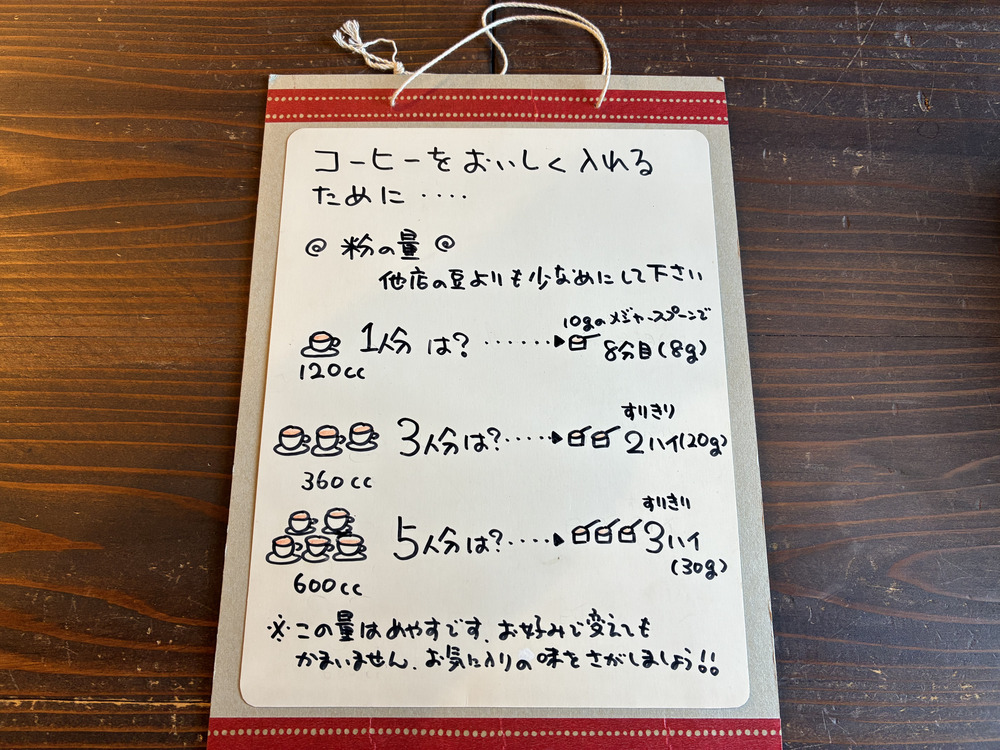 コーヒーをおいしく入れる
ために‥‥
◎ 粉の量 ◎
他店の豆よりも少なめにして下さい
1人分は?‥‥‥▶
10gのメジャースプーンで
8分目(8g)
120cc
3人分は?‥‥▶
すりきり
2ハイ(20g)
360cc
5人分は?‥‥▶
すりきり
3ハイ
(30g)
600cc
※この量はめやすです、お好みで変えても
かまいません、お気に入りの味をさがしましょう!!